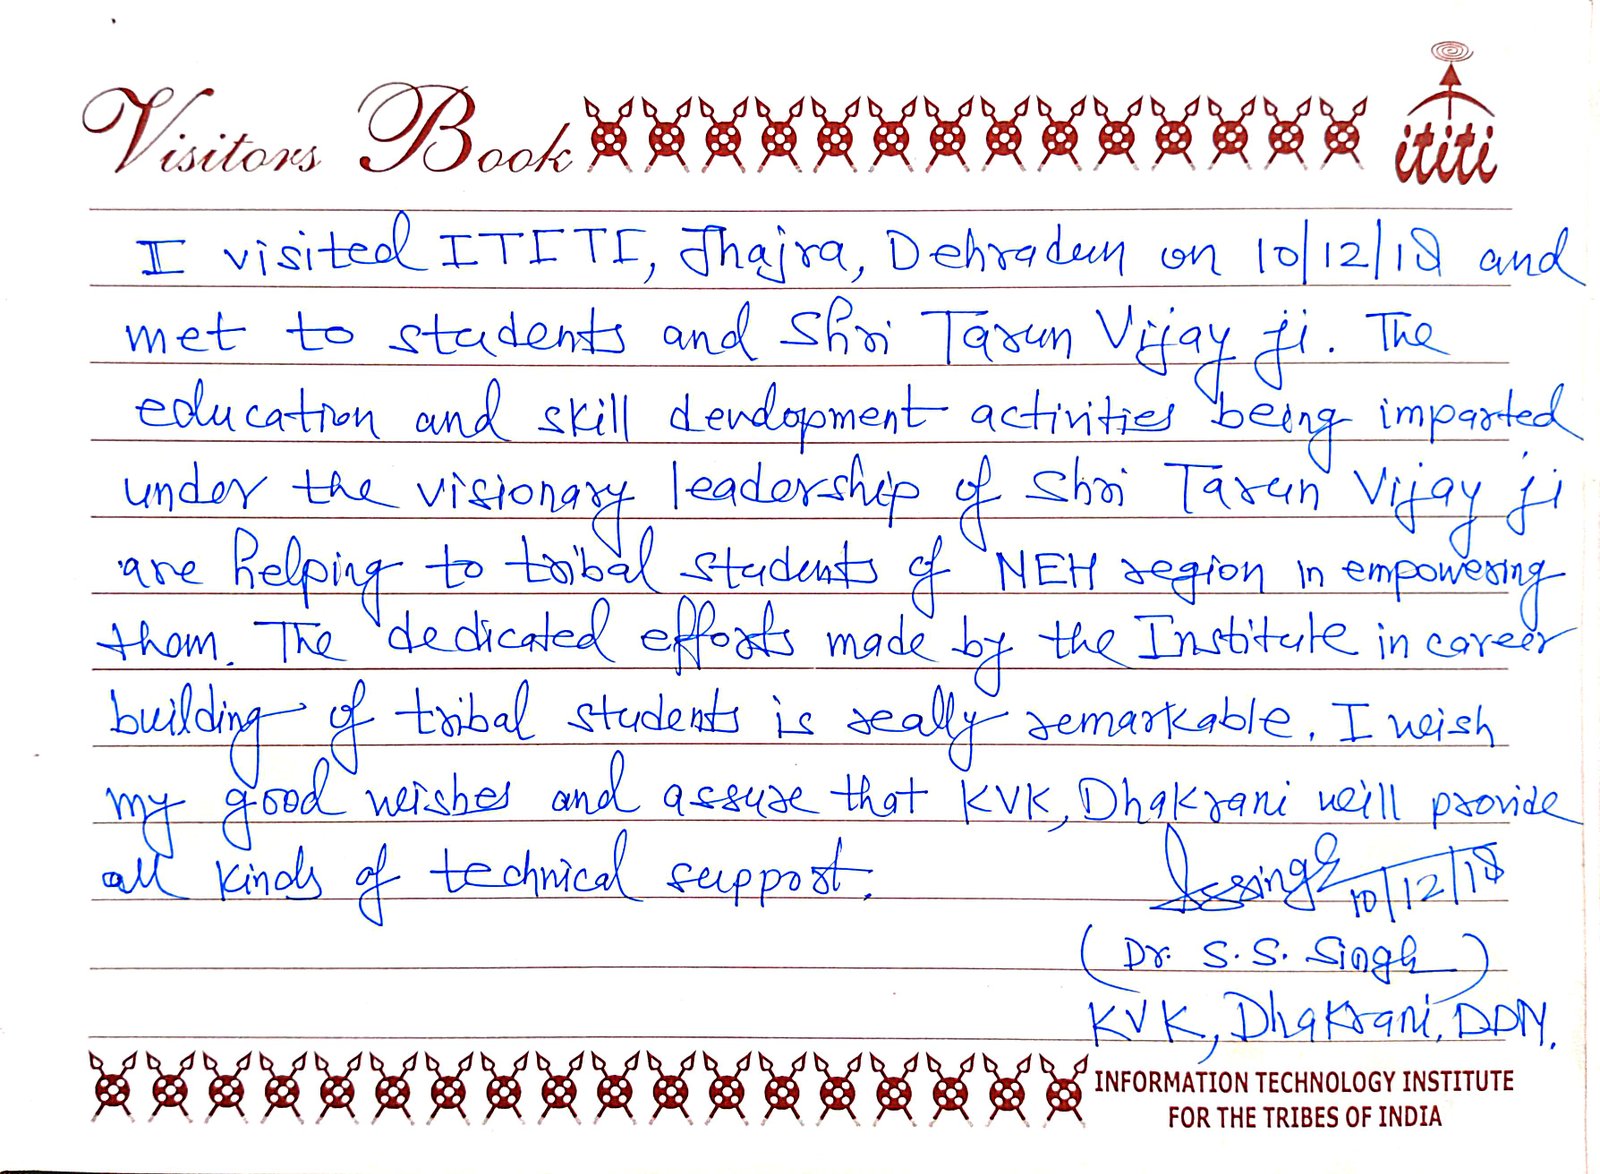 Visitors Book
ititi
I visited ITITI, Jhajra, Dehradun on 10/12/18 and
met to students and Shri Tarun Vijay ji. The
education and skill development activities being imparted
under the visionary leadership of Shri Tarun Vijay ji
are helping to tribal students of NEH region in empowering
them. The dedicated efforts made by the Institute in career
building of tribal students is really remarkable. I wish
my good wishes and assure that KVK, Dhakrani will provide
all kinds of technical support.
Sssingh 10/12/18
(Dr. S.S. Singh)
KVK, Dhakrani, DDN.
INFORMATION TECHNOLOGY INSTITUTE
FOR THE TRIBES OF INDIA